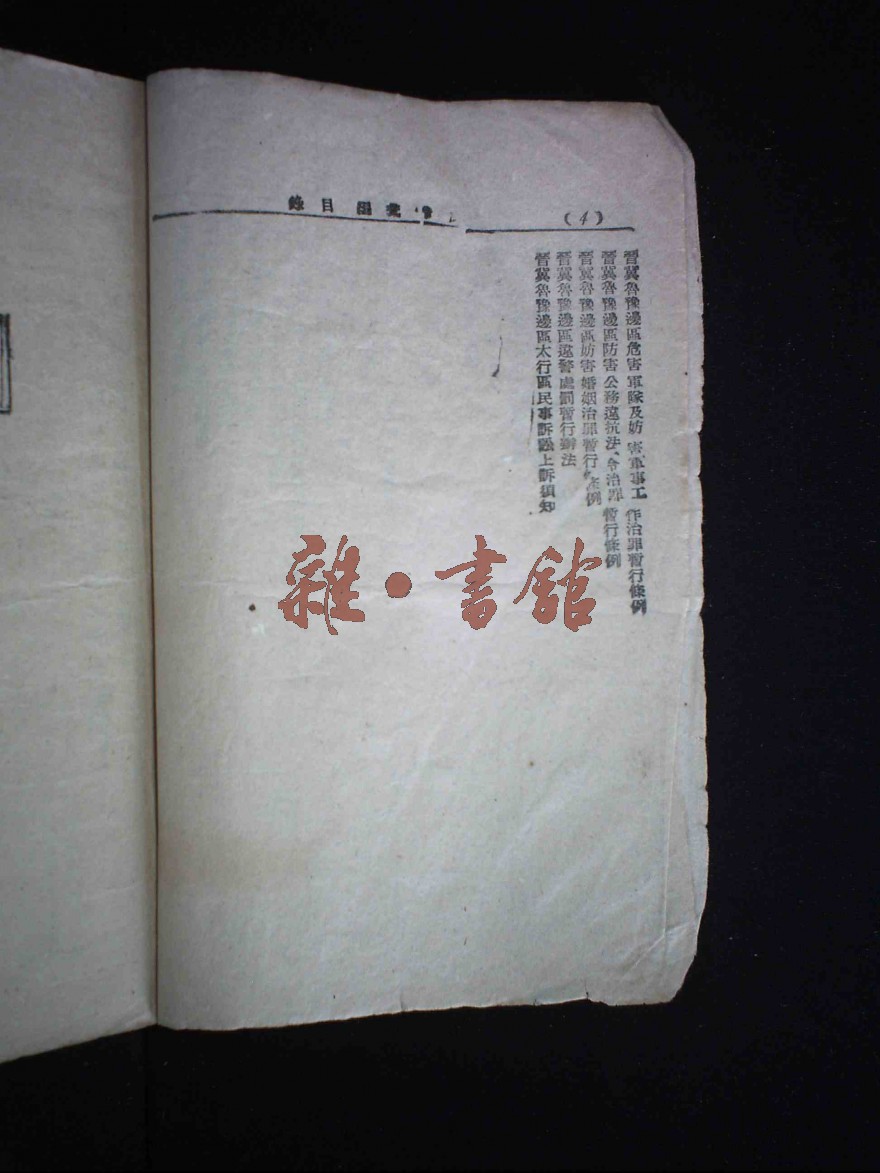 (4)
目錄
晉冀魯豫邊區危害軍隊及妨害軍事工作治罪暫行條例
晉冀魯豫邊區防害公務違抗法令治罪暫行條例
晉冀魯豫邊區妨害婚姻治罪暫行條例
晉冀魯豫邊區違警處罰暫行辦法
晉冀魯豫邊區太行區民事訴訟上訴須知
雜·書館